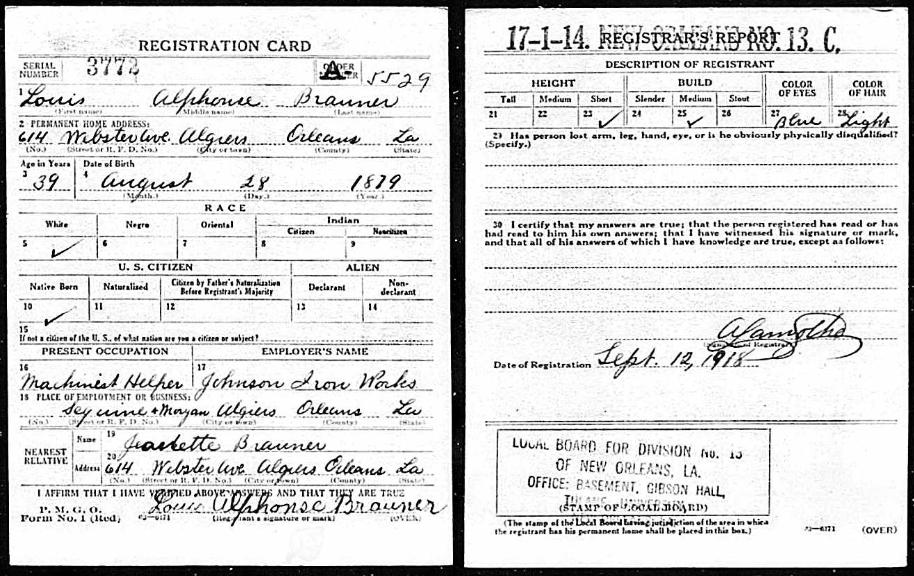 REGISTRATION CARD
SERIAL NUMBER 3772 ORDER NUMBER A- 5529
1 Louis Alphonse Brauner
(First name) (Middle name) (Last name)
2 PERMANENT HOME ADDRESS:
614 Webster Ave. Algiers Orleans La
(No.) (Street or R. F. D. No.) (City or town) (County) (State)
Age in Years Date of Birth
3 39 4 August 28 1879
(Month.) (Day.) (Year.)
RACE
White Negro Oriental Indian
Citizen Noncitizen
5 ✓ 6 7 8 9
U. S. CITIZEN ALIEN
Native Born Naturalized Citizen by Father's Naturalization Before Registrant's Majority Declarant Non-declarant
10 ✓ 11 12 13 14
15
If not a citizen of the U. S., of what nation are you a citizen or subject?
PRESENT OCCUPATION EMPLOYER'S NAME
16 Machinest Helper 17 Johnson Iron Works
18 PLACE OF EMPLOYMENT OR BUSINESS:
+ Morgan Algiers Orleans La
(No.) (Street or R. F. D. No.) (City or town) (County) (State)
NEAREST RELATIVE
Name 19 Brauner
Address 20 614 Webster Ave Algiers Orleans La
(No.) (Street or R. F. D. No.) (City or town) (County) (State)
I AFFIRM THAT I HAVE VERIFIED ABOVE ANSWERS AND THAT THEY ARE TRUE
P. M. G. O.
Form No. 1 (Red) Louis Alphonse Brauner
(Registrant's signature or mark) (OVER)
17-1-14. NEW ORLEANS NO. 13. C.
REGISTRAR'S REPORT
DESCRIPTION OF REGISTRANT
HEIGHT BUILD COLOR OF EYES COLOR OF HAIR
Tall Medium Short Slender Medium Stout
21 22 23 ✓ 24 25 ✓ 26 27 Blue 28 Light
29 Has person lost arm, leg, hand, eye, or is he obviously physically disqualified?
(Specify.)
30 I certify that my answers are true; that the person registered has read or has
had read to him his own answers; that I have witnessed his signature or mark,
and that all of his answers of which I have knowledge are true, except as follows:
(Signature of Registrar)
Date of Registration Sept. 12, 1918
LOCAL BOARD FOR DIVISION No. 13
OF NEW ORLEANS, LA.
OFFICE: BASEMENT, GIBSON HALL,
TULANE UNIVERSITY
(STAMP OF LOCAL BOARD)
(The stamp of the Local Board having jurisdiction of the area in which
the registrant has his permanent home shall be placed in this box.)
(OVER)